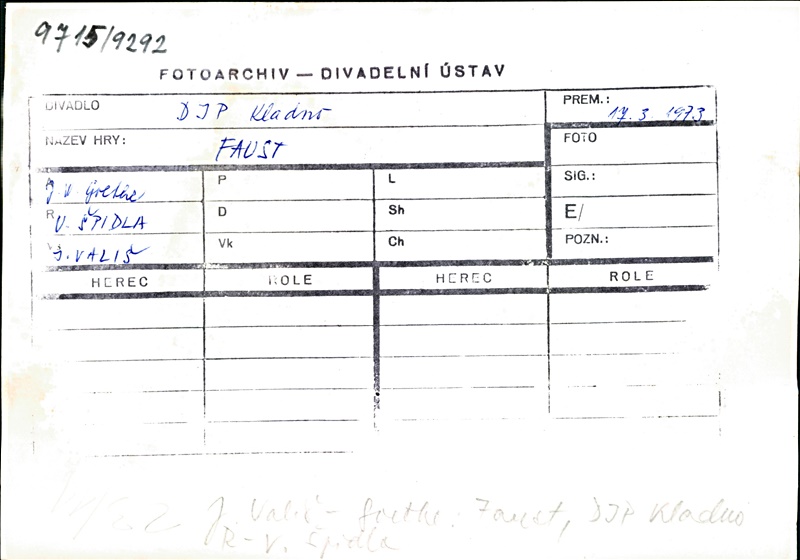 9715/9292
FOTOARCHIV — DIVADELNÍ ÚSTAV
DIVADLO DJP Kladno PREM.: 17.3 1973
NÁZEV HRY: FAUST FOTO
J. W. Goethe P L SIG.:
R V. ŠPIDLA D Sh E/
J. VALIŠ Vk Ch POZN.:
HEREC ROLE HEREC ROLE
J. Vališ - Goethe: Faust, DJP Kladno
R - V. Špidla